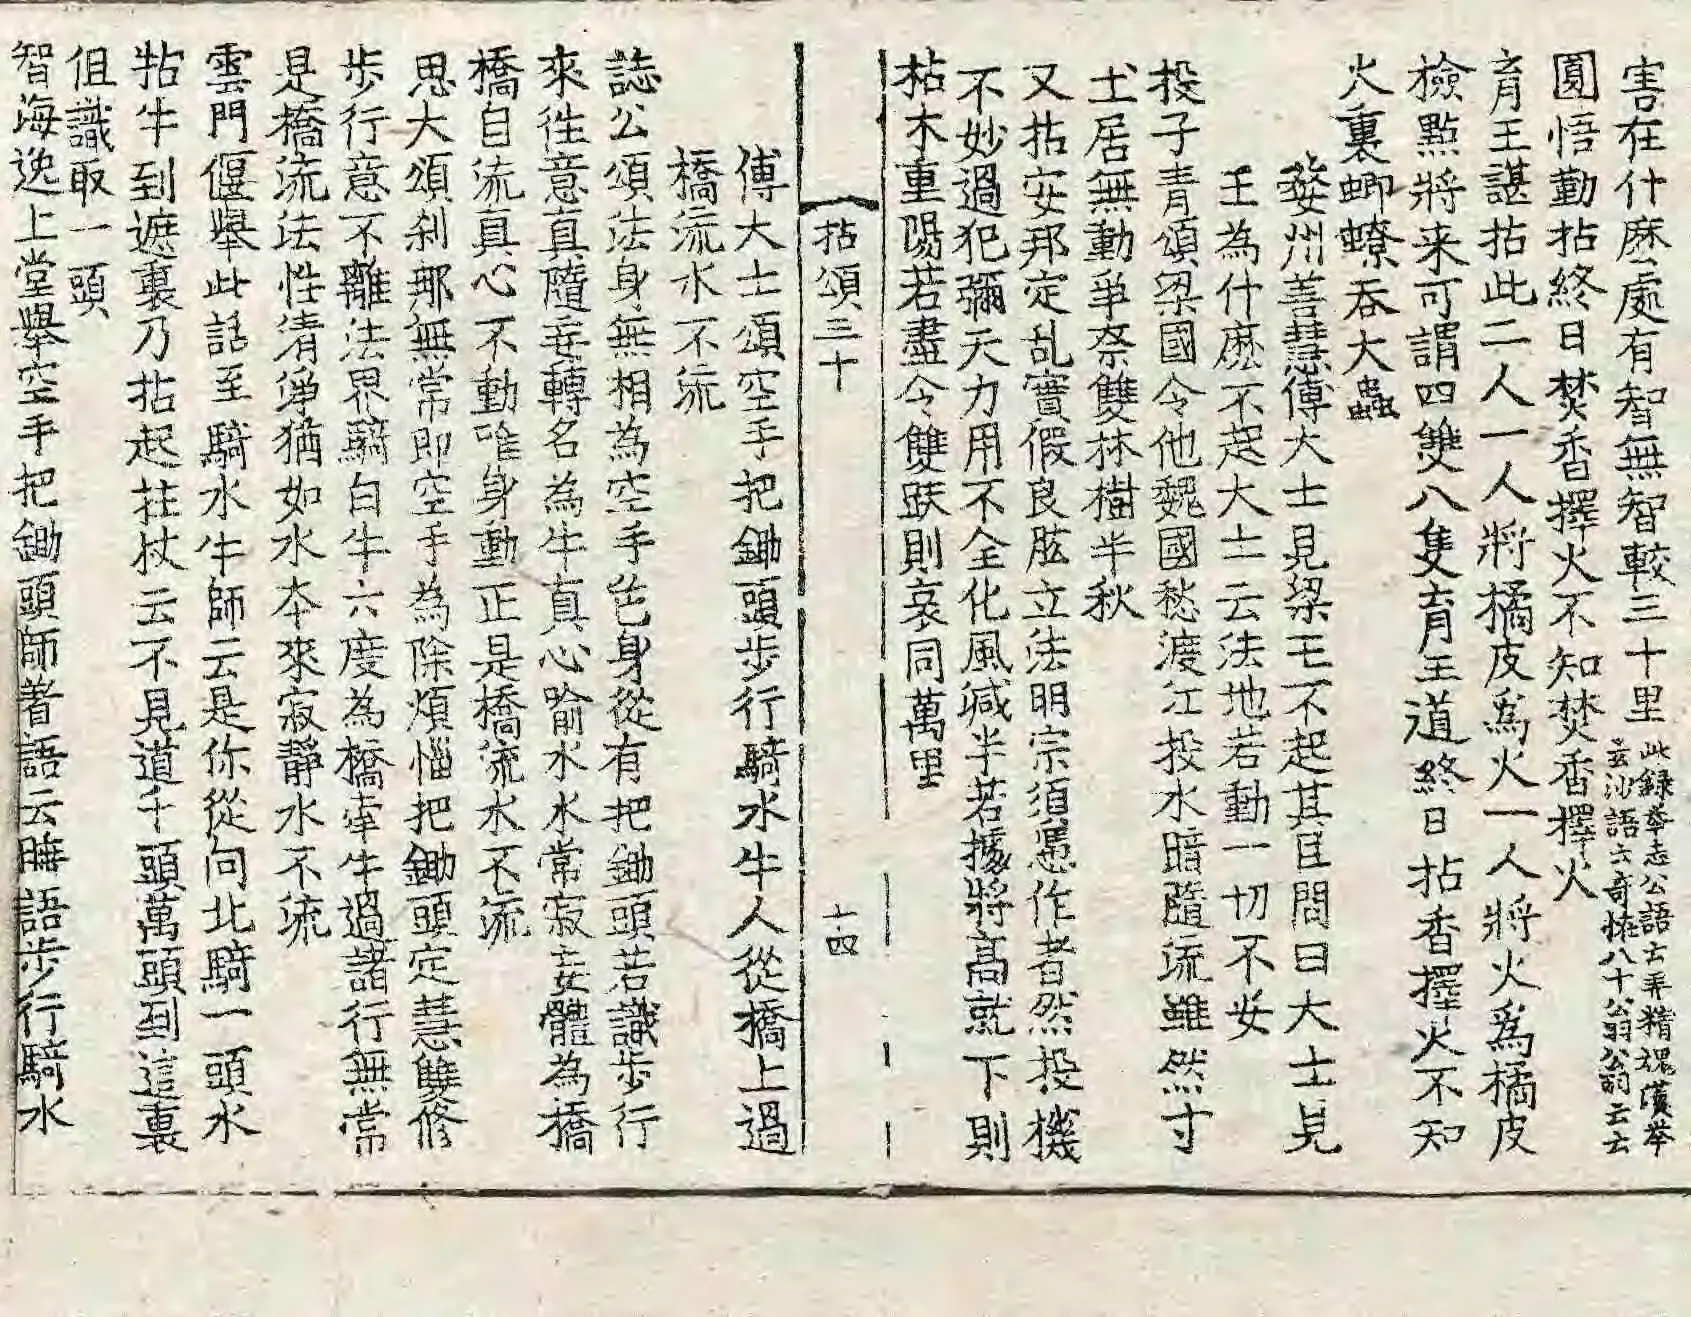 害在什麽處有智無智較三十里
此録拳志公語云弄精魂漢拳
玄沙語云奇恠八十公翁公嗣云云
圓悟勤拈終日焚香擇火不知焚香擇火
育王諶拈此二人一人將橘皮爲火一人將火爲橘皮
檢點將来可謂四雙八隻育王道終日拈香擇火不知
火裏蝍蟟吞大蟲
婺州善慧傅大士見梁王不起其臣問曰大士見
王為什麽不起大士云法地若動一切不安
投子青頌梁國令他魏國愁渡江投水暗隨流雖然寸
土居無動爭奈雙林樹半秋
又拈安邦定乱實假良肱立法明宗須憑作者然投機
不妙過犯彌天力用不全化風减半若據將高就下則
枯木重陽若盡令雙趺則哀同萬里
拈頌三十
十四
傅大士頌空手把鋤頭步行騎水牛人從橋上過
橋流水不流
誌公頌法身無相為空手色身從有把鋤頭若識步行
來徃意真隨妄轉名為牛真心喻水水常寂妄體為橋
橋自流真心不動唯身動正是橋流水不流
思大頌刹那無常即空手為除煩惱把鋤頭定慧雙修
步行意不離法界騎白牛六度為橋牽牛過諸行無常
是橋流法性清淨猶如水夲來寂靜水不流
雲門偃舉此話至騎水牛師云是你從向北騎一頭水
牯牛到遮裏乃拈起拄杖云不見道千頭萬頭到這裏
但識取一頭
智海逸上堂舉空手把鋤頭師著語云瞌語步行騎水